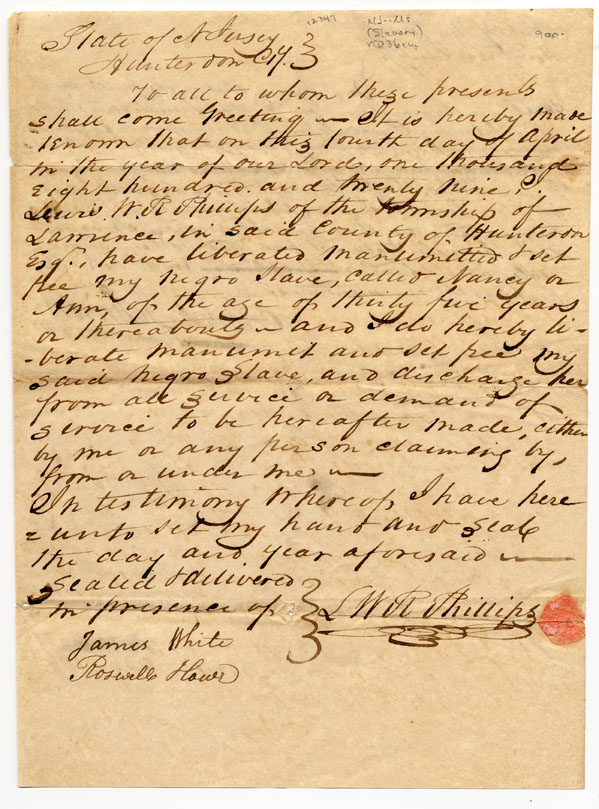 12347
NJ--Ms
(Slavery)
900-
State of N Jersey
Hunterdon Cty.
To all to whom these presents
shall come Greeting — It is hereby made
known that on this fourth day of April
in the year of our Lord, one thousand
Eight hundred and twenty nine, I.
Lewis W. R Phillips of the township of
Lawrence, in said County of Hunterdon
Esqr., have liberated manumitted & set
free my negro slave, called Nancy or
Ann, of the age of thirty five years
or thereabouts — and I do hereby li-
-berate manumit and set free my
said negro slave, and discharge her
from all service or demand of
service to be hereafter made, either
by me or any person claiming by,
from or under me —
In testimony whereof, I have here
= unto set my hand and seal
the day and year aforesaid —
Sealed & delivered
in presence of
L W R Phillips
James White
Roswell Howe